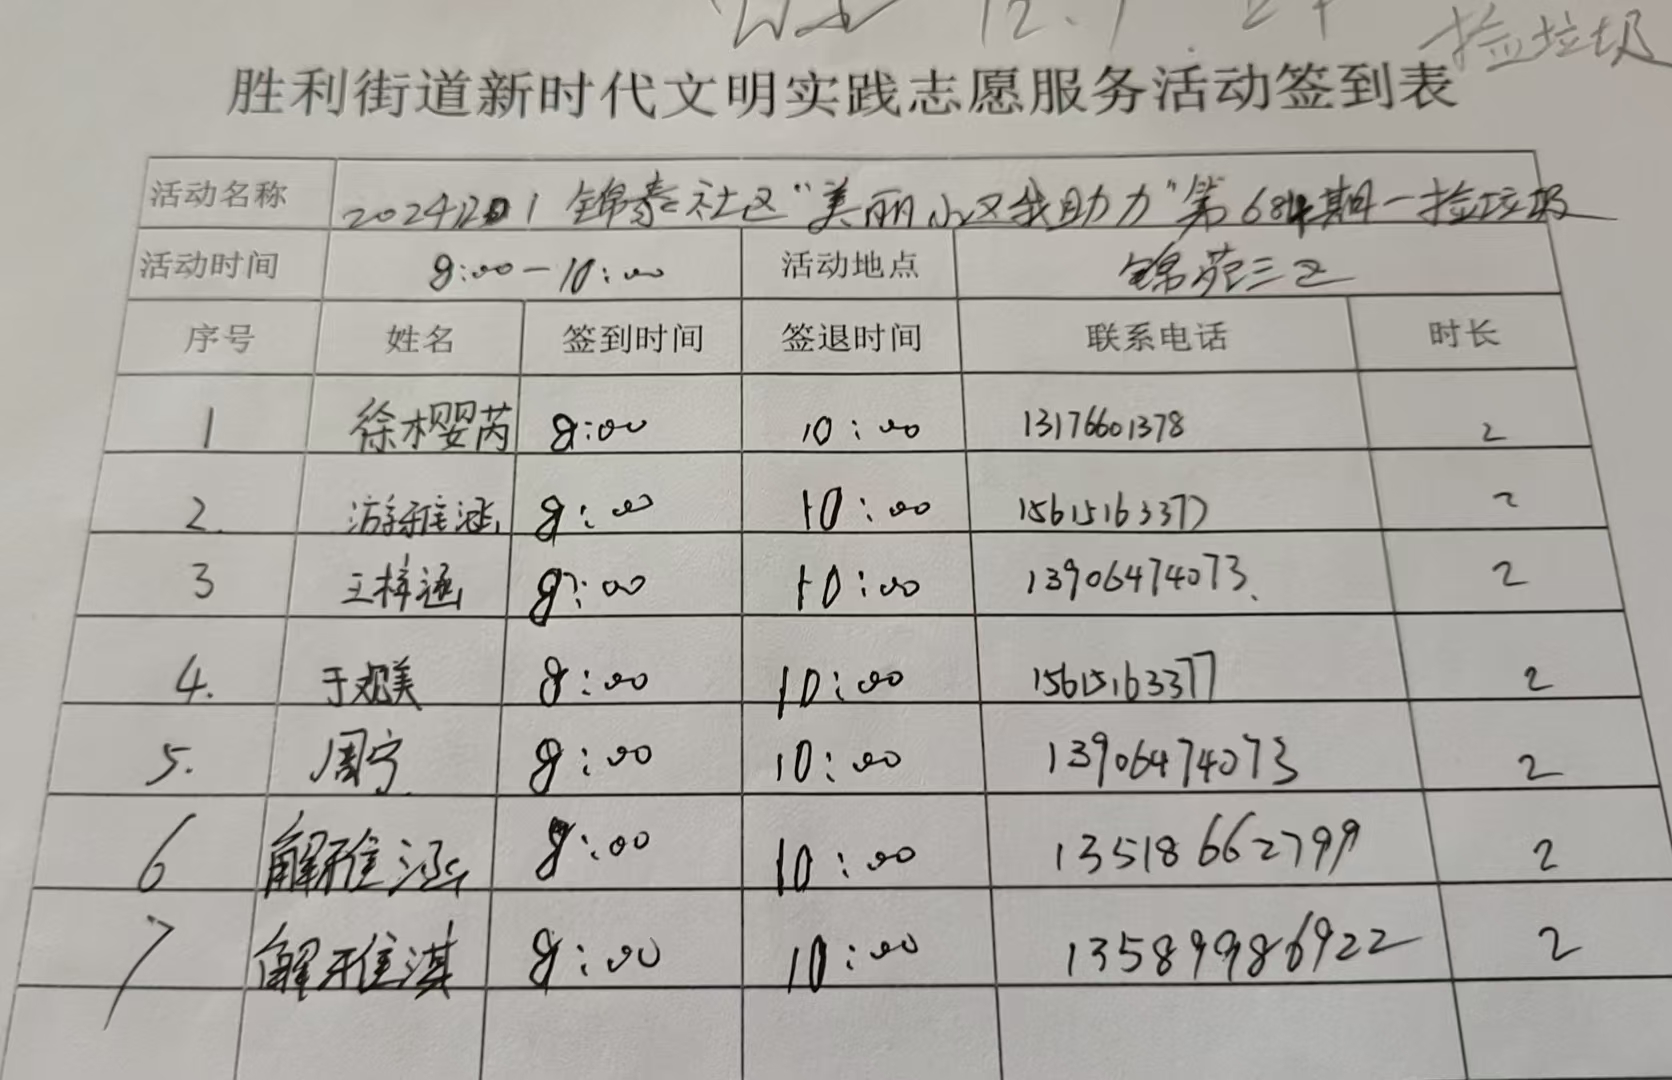 12.1
捡垃圾
胜利街道新时代文明实践志愿服务活动签到表
活动名称 20241201 锦泰社区“美丽小区我助力”第684期—捡垃圾
活动时间 8:00—10:00 活动地点 锦苑三区
序号 姓名 签到时间 签退时间 联系电话 时长
1 徐樱芮 8:00 10:00 13176601378 2
2. 游雅涵 8:00 10:00 15615163377 2
3 王梓涵 8:00 10:00 13906474073. 2
4. 于观美 8:00 10:00 15615163377 2
5. 周宁 8:00 10:00 13906474073 2
6 解雅涵 8:00 10:00 13518662799 2
7 解雅淇 8:00 10:00 13589986922 2